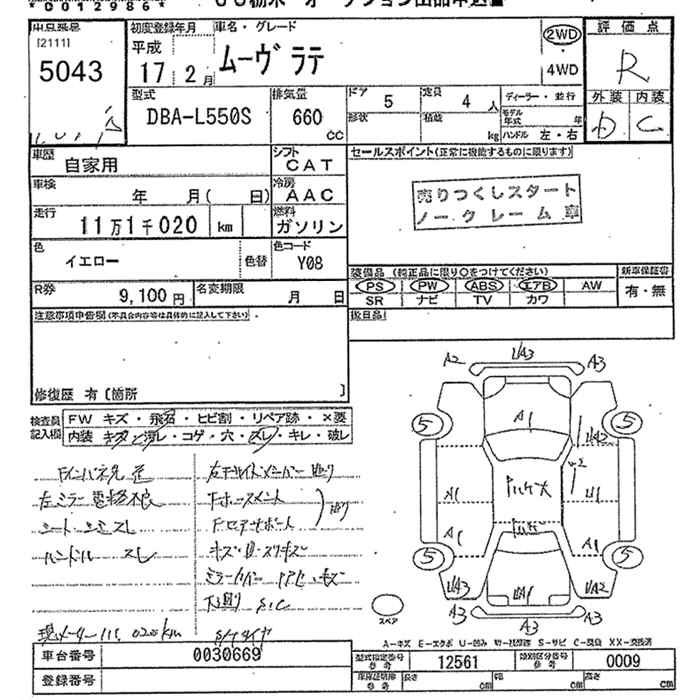 *00129864*
出品番号
[2111]
5043
初度登録年月
平成
17 2月
車名・グレード
ムーヴ ラテ
2WD
4WD
評価点
R
外装 内装
D C
型式
DBA-L550S
排気量
660
CC
ドア
5
形状
定員
4 人
積載
kg
ディーラー・並行
モデル年式 年
ハンドル 左・右
車歴
自家用
シフト
CAT
車検
年 月( 日)
冷房
AAC
走行
11万1千020 km
燃料
ガソリン
色
イエロー
色替
色コード
Y08
R券
9,100 円
名変期限
月 日
セールスポイント(正常に機能するものに限ります)
売りつくしスタート
ノークレーム車
装備品 (純正品に限り○をつけてください)
PS PW ABS エアB AW
SR ナビ TV カワ
新車保証書
有・無
注意事項申告欄(不具合内容等は具体的に記入して下さい)
後日品
修復歴 有 [箇所 ]
検査員記入欄
FW キズ・飛石・ヒビ割・リペア跡・×要
内装 キズ・汚レ・コゲ・穴・スレ・キレ・破レ
左ミラー電格不良
ハンドル スレ
下廻り S.C
現メーター 111,020km
スペア
A2 A3 A3
A1
5 5
A1
A1 A1
5 5
A2
A3 A3 A3
A-キズ E-エクボ U-凹み W-板跡 S-サビ C-腐食 XX-交換済
車台番号 0030669
登録番号
型式指定番号 参考 12561
類別区分番号 参考 0009
車庫証明用 参考 長さ cm 幅 cm 高さ cm